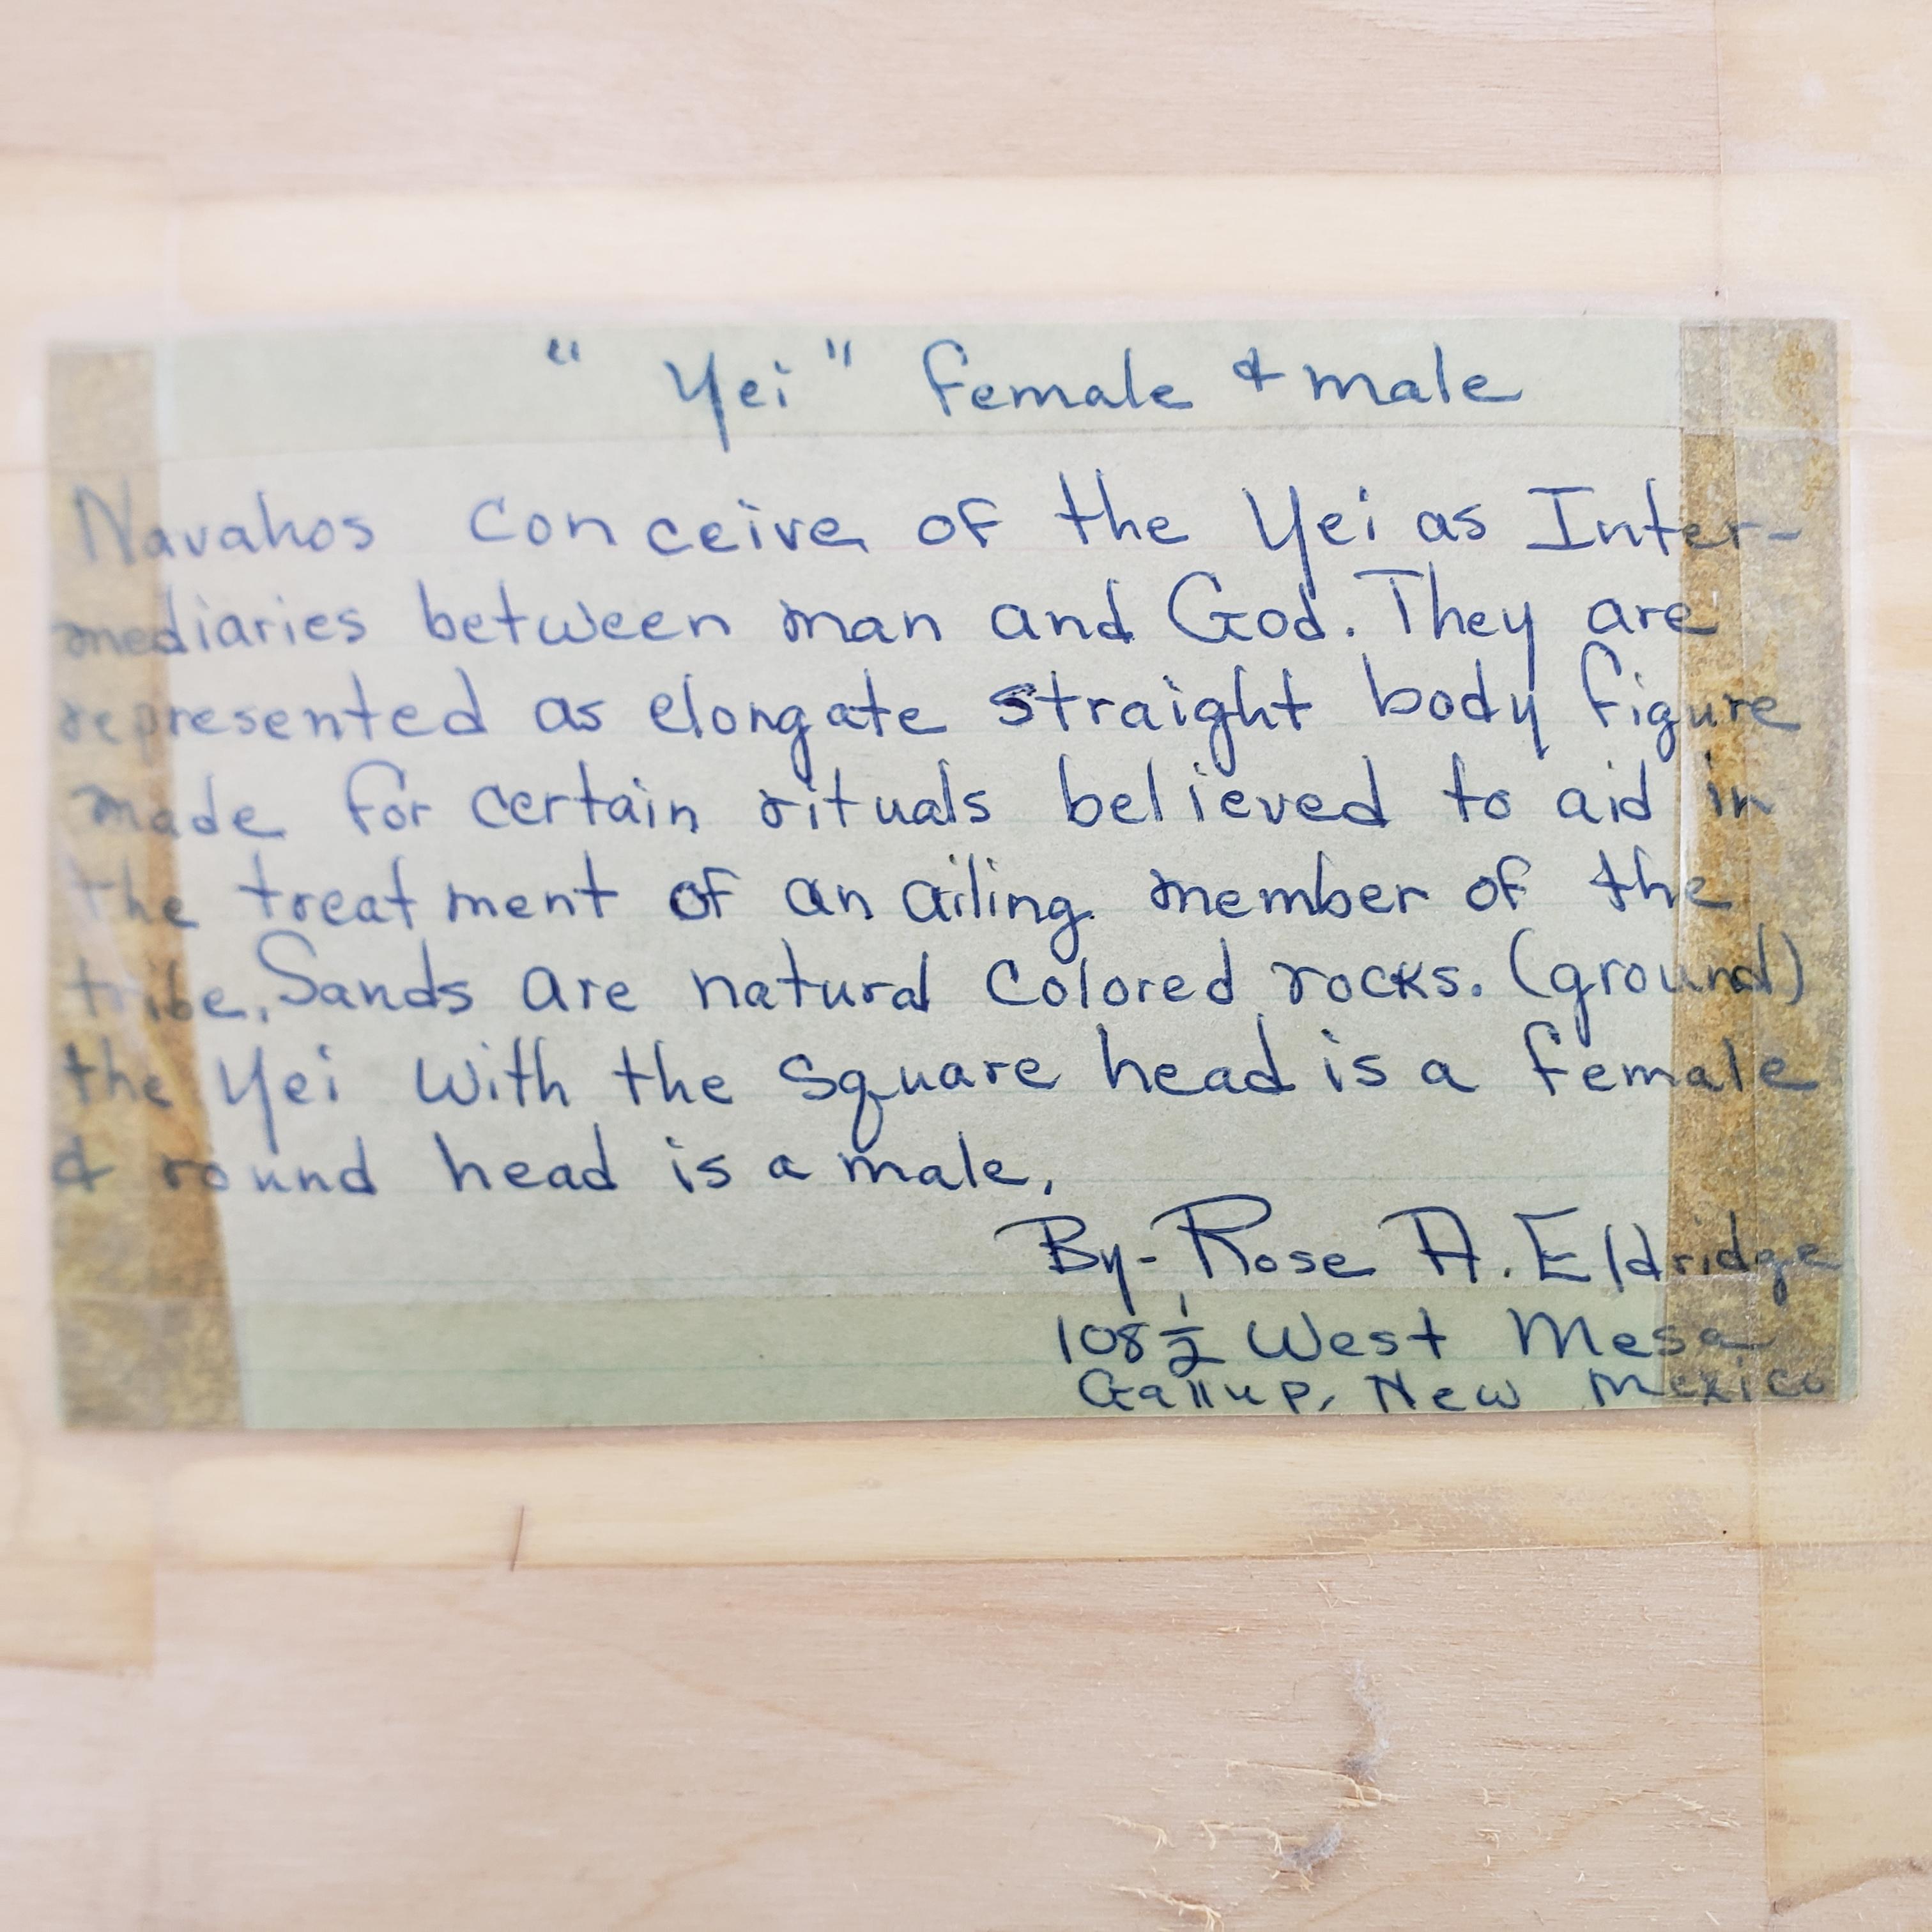 "Yei" female & male
Navahos conceive of the Yei as Inter-
mediaries between man and God. They are
represented as elongate straight body figure
made for certain rituals believed to aid in
the treatment of an ailing member of the
tribe. Sands are natural colored rocks. (ground)
the Yei with the square head is a female
& round head is a male.
By- Rose A. Eldridge
108 1/2 West Mesa
Gallup, New Mexico